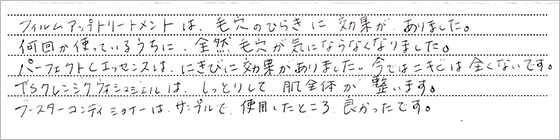 フィルムアップトリートメントは、毛穴のひらきに効果がありました。
何回か使っているうちに、全然毛穴が気にならなくなりました。
パーフェクトCエッセンスは、にきびに効果がありました。今ではニキビは全くないです。
クレンジングフォーシュシェルは、しっとりして、肌全体が整います。
ブースターコンディショナーは、サンプルで、使用したところ、良かったです。